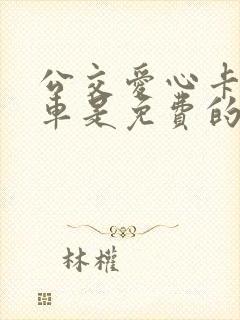 公交愛心卡
車是免費的
林權